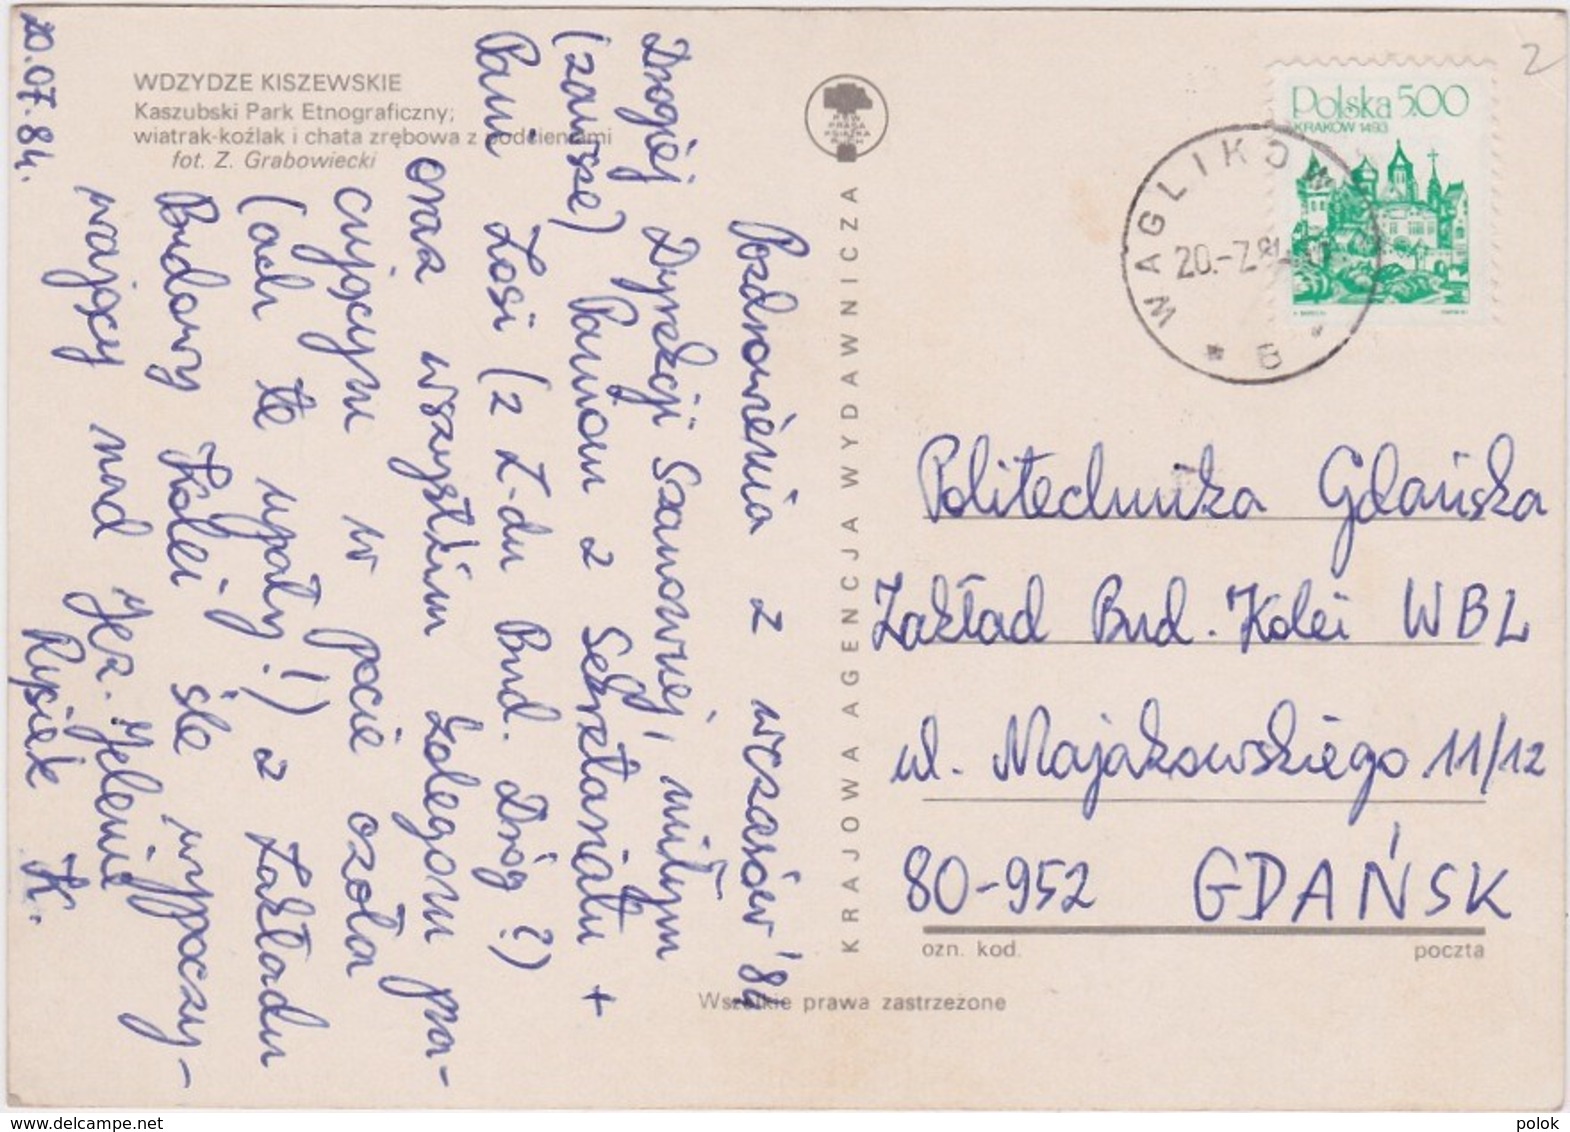 WDZYDZE KISZEWSKIE
Kaszubski Park Etnograficzny;
wiatrak-koźlak i chata zrębowa z podcieniami
fot. Z. Grabowiecki
20.07.84.
Pozdrowienia z wczasów '84
Drogiej Dyrekcji Szanownej, miłym
(zawsze) Paniom z Sekretariatu +
Pani Zosi (z Z-du Bud. Dróg?)
oraz wszystkim kolegom pra-
cującym w pocie czoła
(ach te upały!) z Zakładu
Budowy Kolei śle wypoczy-
wający nad Jez. Jelenie
Rysiek K.
KRAJOWA AGENCJA WYDAWNICZA
RSW
PRASA
KSIĄŻKA
RUCH
Wszelkie prawa zastrzeżone
2
Polska 5.00
KRAKÓW 1493
WAGLIKOW
20.-7.84.
* B *
Politechnika Gdańska
Zakład Bud. Kolei WBL
ul. Majakowskiego 11/12
80-952 GDAŃSK
ozn. kod. poczta
www.delcampe.net
polok